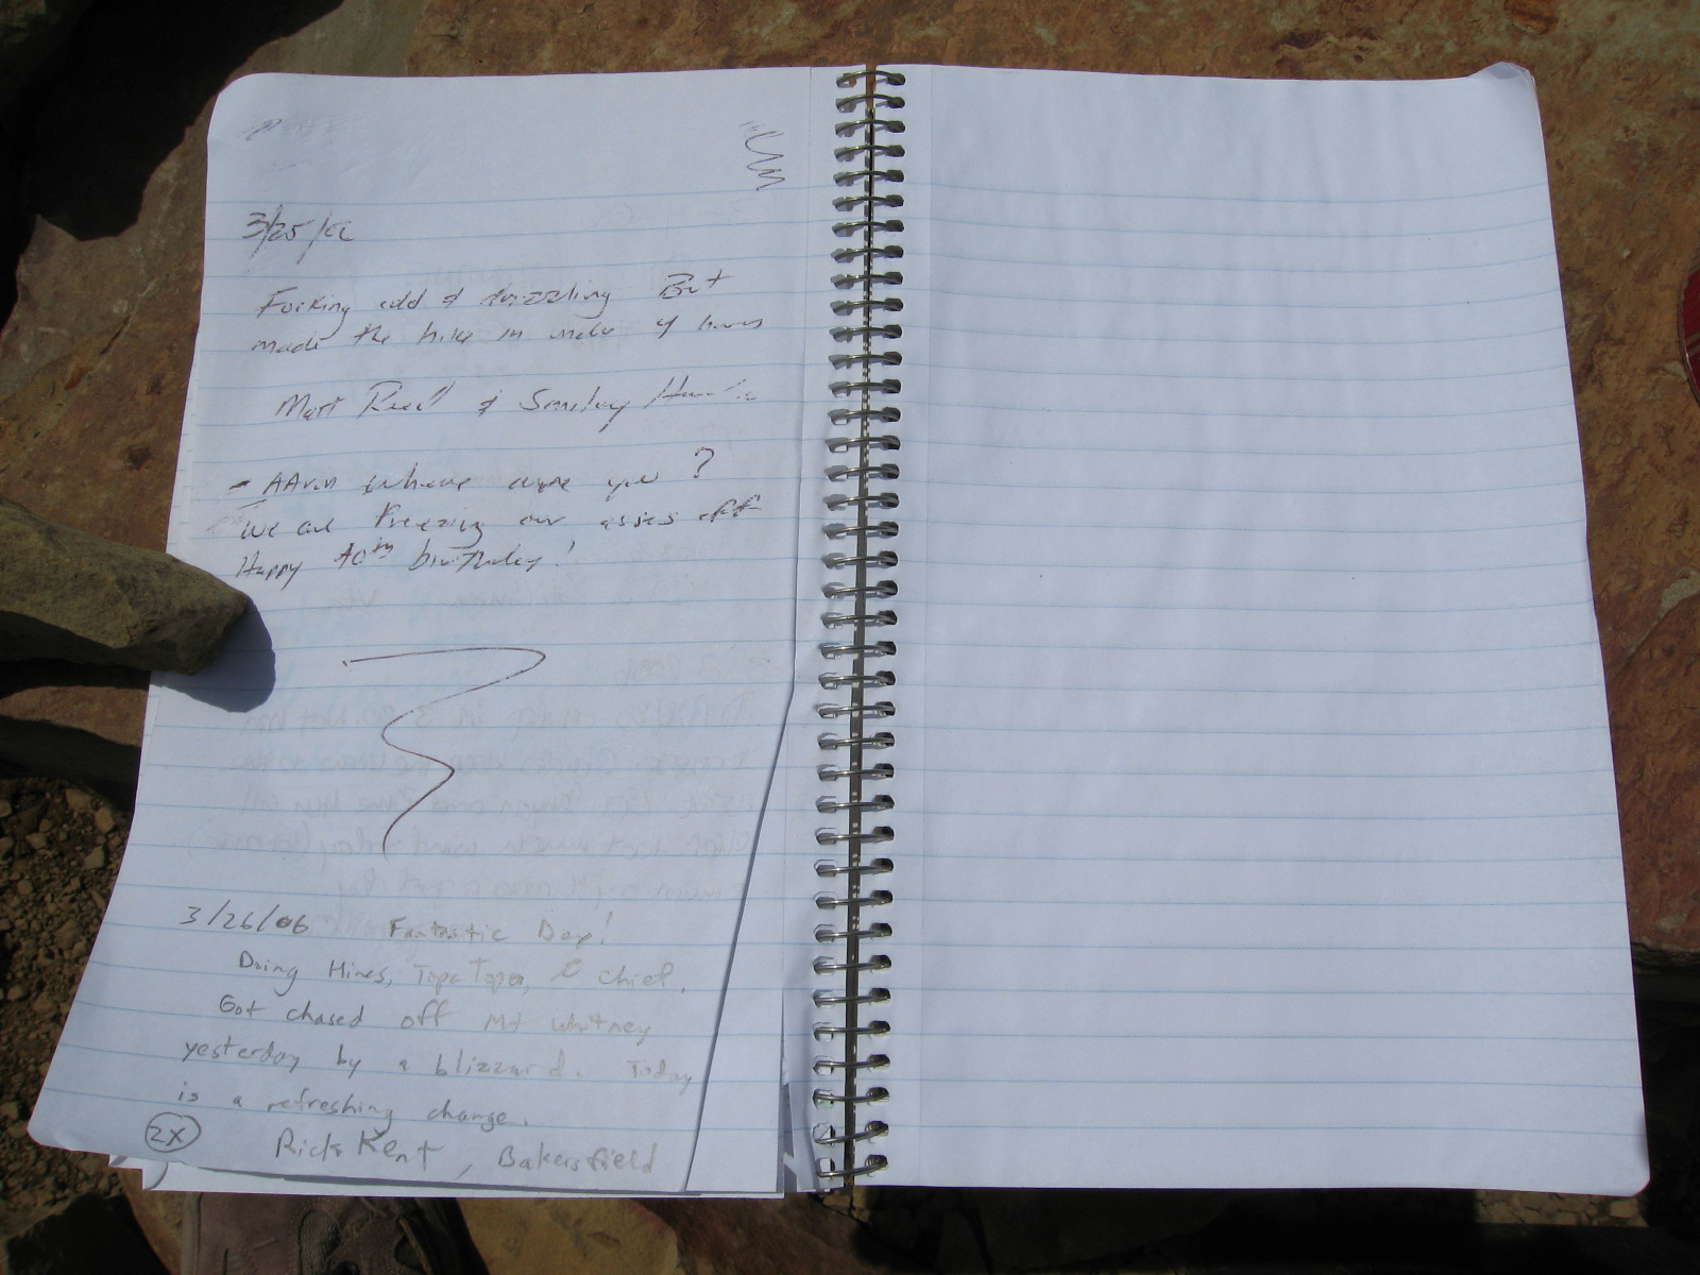 3/25/06
Forking cold & drizzling But
made the hike in under 4 hours
Matt Reed &
- AAron where are you?
We are Freezing our asses off
Happy 40th birthday!
3/26/06 Fantastic Day!
Doing Hines, Topa Topa, & Chief.
Got chased off Mt Whitney
yesterday by a blizzard. Today
is a refreshing change.
2X Rick Kent, Bakersfield